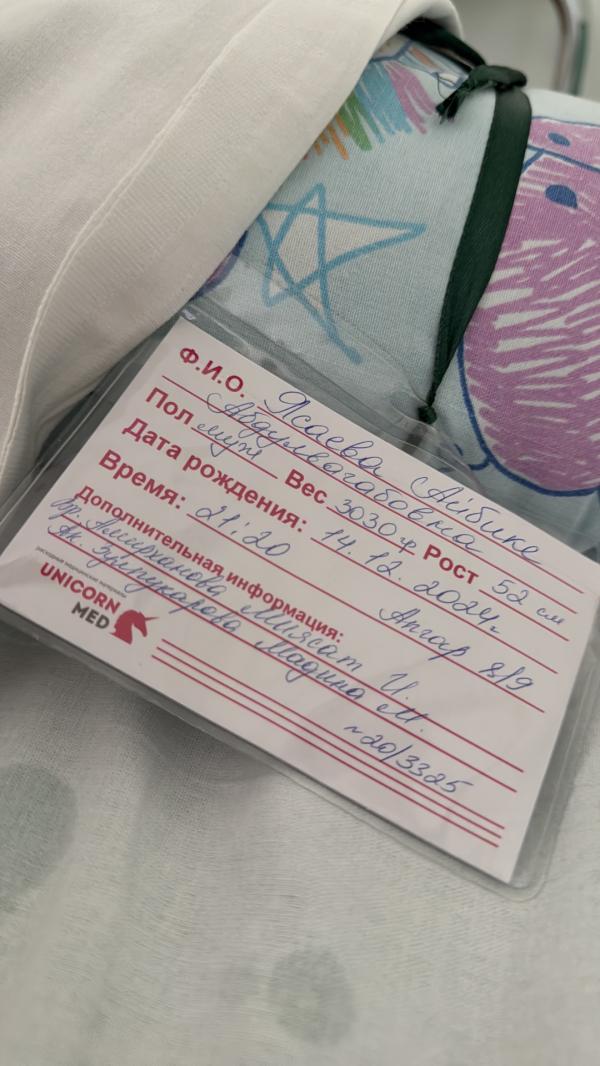 Ф.И.О. Ясаева Айбике
Абдулвагабовна
Пол муж Вес 3030 гр Рост 52 см
Дата рождения: 14.12.2024г
Время: 21:20 Апгар 8/9
Дополнительная информация:
Вр. Амирханова Миясат И.
Ак. Зулпукарова Мадина М.
~20/3325
расходные медицинские материалы
UNICORN
MED